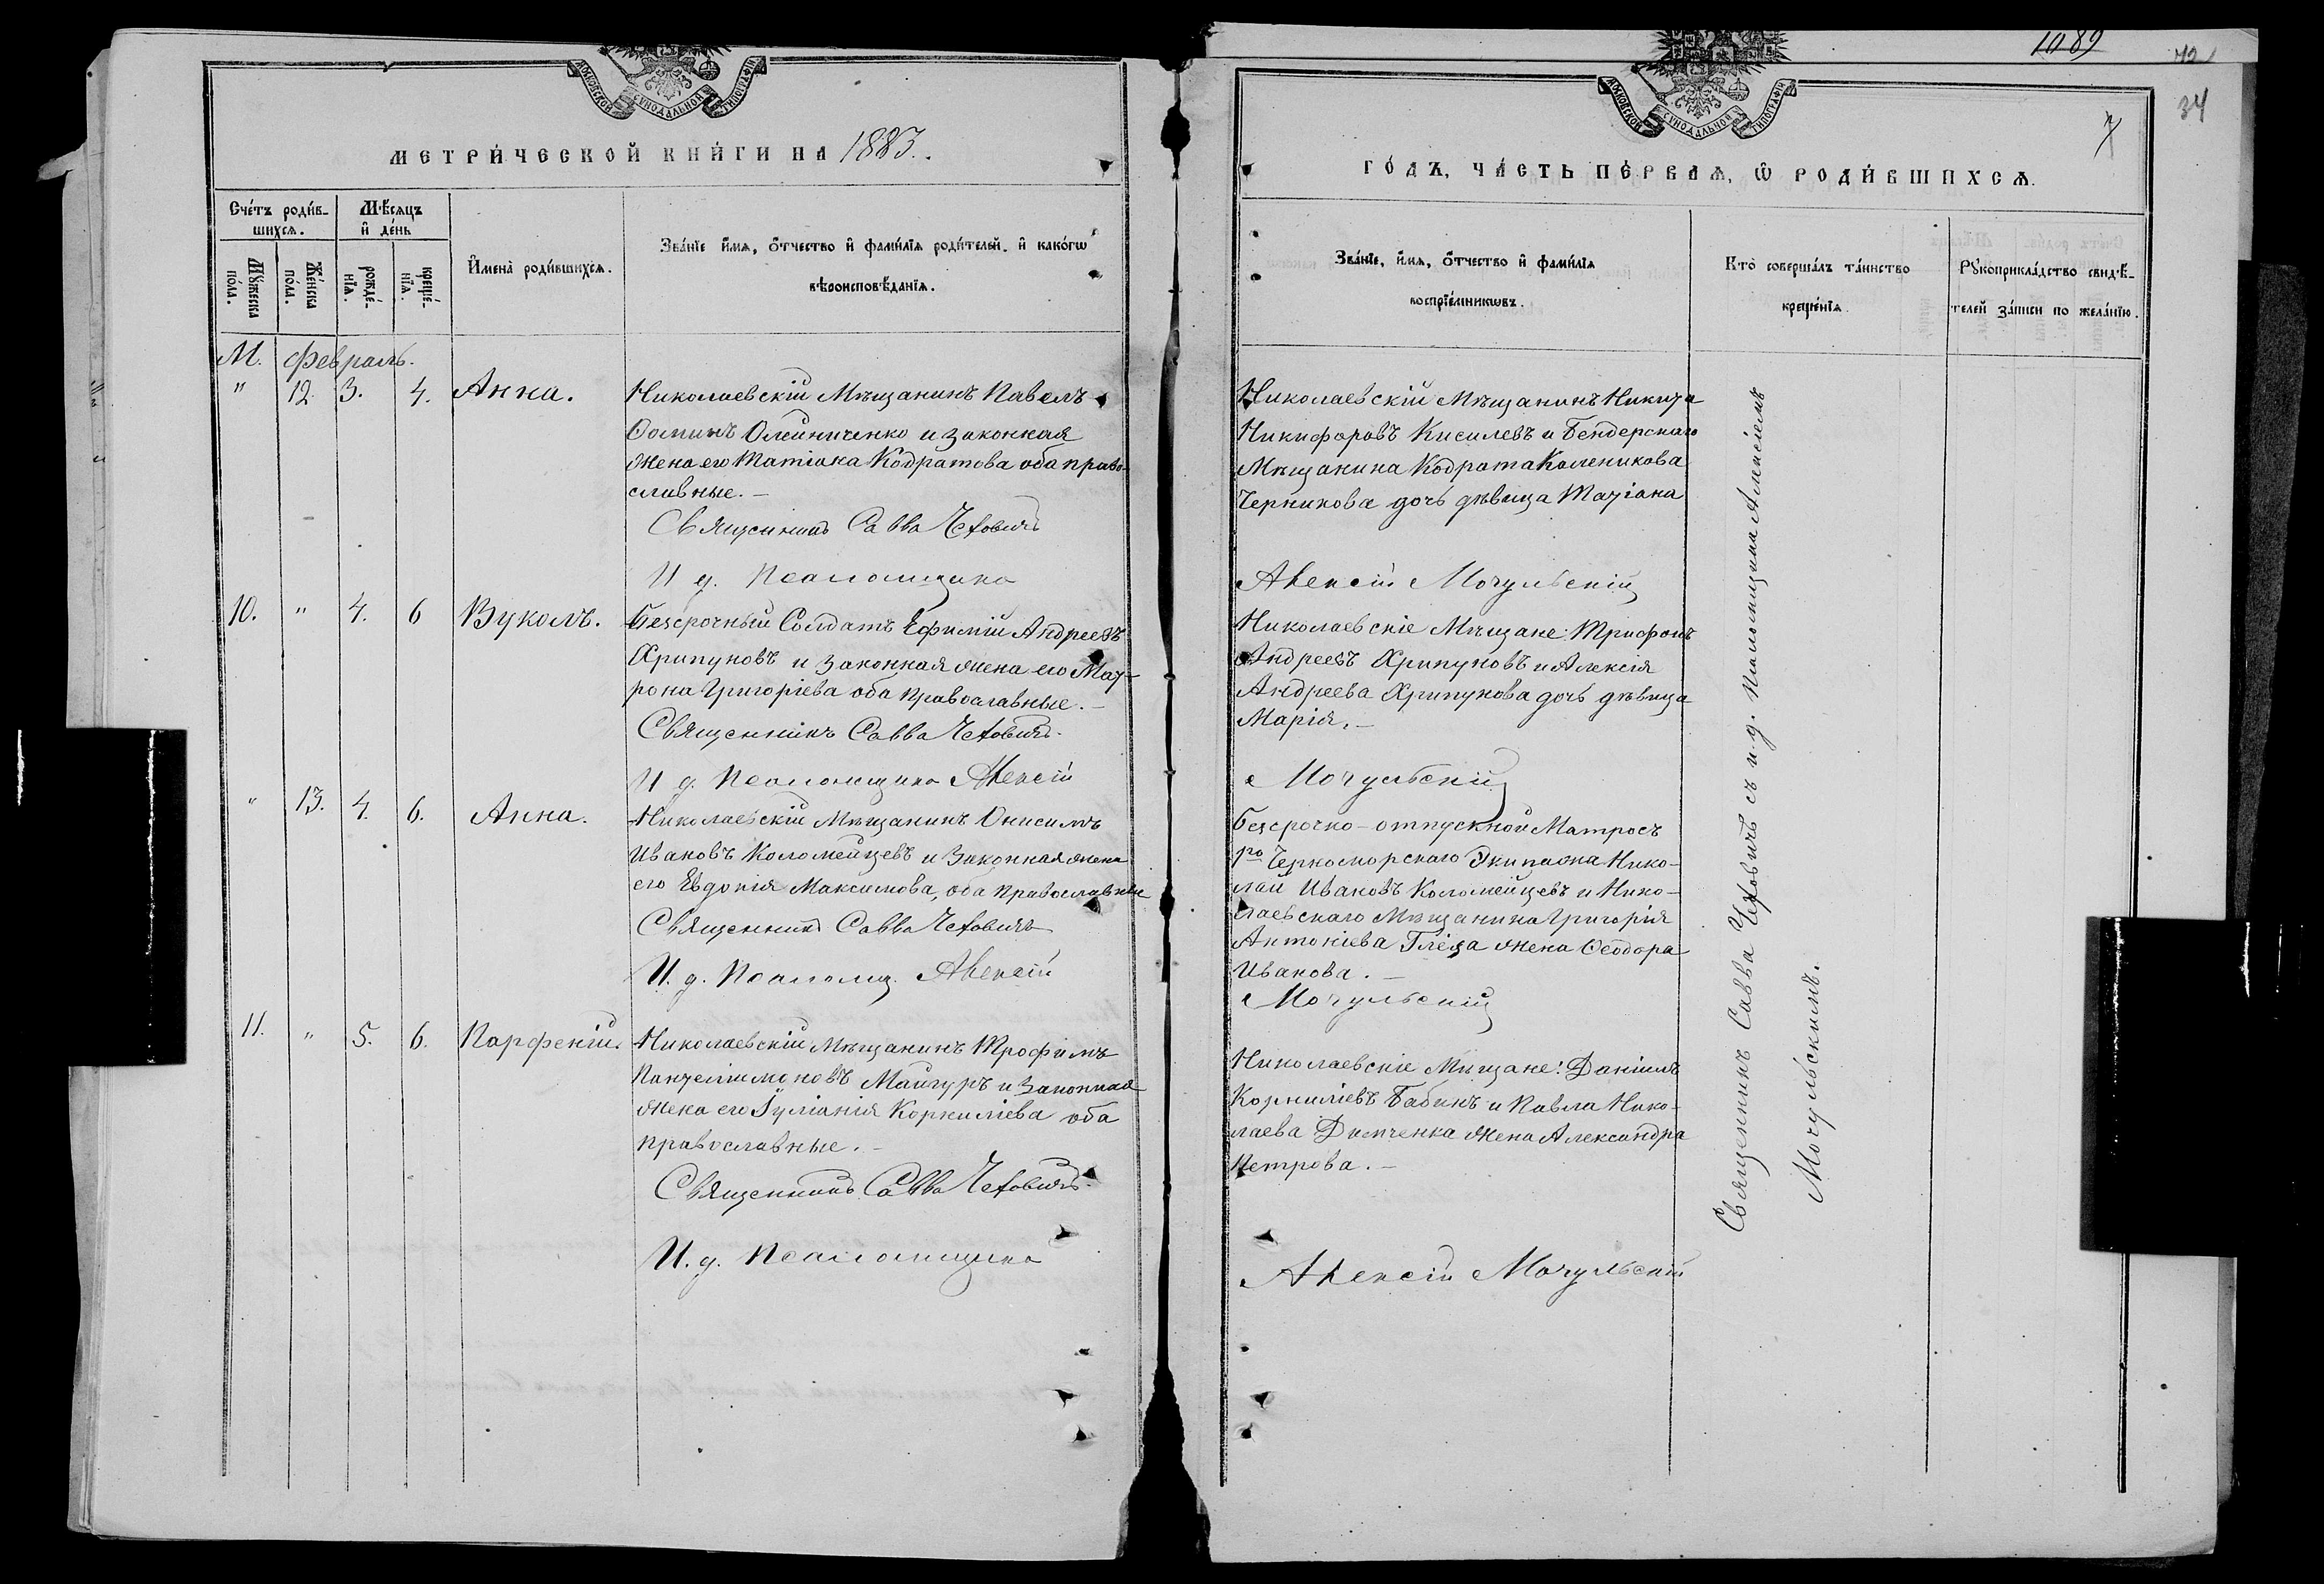 МОСКОВСКОЙ СѴНОДАЛЬНОЙ ТИПОГРАФІИ
МЕТРИ́ЧЕСКОЙ КНИ́ГИ НА 1883.
Сче́тъ роди́в-
шихсѧ.
Мѣ́сѧцъ
и҆ де́нь
Мꙋ́жеска
по́ла.
Же́нска
по́ла.
рожде́-
нїѧ.
креще́-
нїѧ.
И҆мена̀ роди́вшихсѧ.
Зва́нїе и҆́мѧ, ѻ҆́тчество и҆ фами́лїѧ роди́телей. и҆ како́гѡ
вѣроисповѣ́данїѧ.
М. Февраль.
" 12. 3. 4. Анна.
Николаевскій Мѣщанинъ Павелъ
Ѳоминъ Олейниченко и законная
жена его Татіана Кодратова оба право-
славные. —
Священникъ Савва Чехович
И д. Псаломщика
10. " 4. 6 Вуколъ.
Безсрочный Солдатъ Ефимій Андреевъ
Хрипуновъ и законная жена его Мат-
рона Григоріева оба православные. —
Священникъ Савва Чеховичъ.
И д. Псаломщика Алексій
" 13. 4. 6. Анна.
Николаевскій Мѣщанинъ Онисимъ
Ивановъ Коломейцевъ и Законная жена
его Евдокія Максимова, оба православные
Священникъ Савва Чеховичъ
И. д. Псаломщ. Алексій
11. " 5. 6. Парфеній.
Николаевскій Мѣщанинъ Трофимъ
Пантелимоновъ Майгуръ и Законная
жена его Іуліанія Корниліева оба
православные. —
Священникъ Савва Чеховичъ.
И. д. Псаломщика
1089
34
7
МОСКОВСКОЙ СѴНОДАЛЬНОЙ ТИПОГРАФІИ
ГО́ДЪ, ЧА́СТЬ ПЕ́РВАѦ, Ѽ РОДИ́ВШИХСѦ.
Зва́нїе, и҆́мѧ, ѻ҆́тчество и҆ фами́лїѧ
воспрїе́мникѡвъ.
Кто̀ соверша́лъ та́инство
креще́нїѧ
Рꙋкоприкла́дство свидѣ́-
телей за́писи по жела́нїю.
Николаевскій Мѣщанинъ Никита
Никифоровъ Киселевъ и Бендерскаго
Мѣщанина Кодрата Каленикова
Черникова дочь дѣвица Татіана
Алексій Мочульскій
Николаевскіе Мѣщане: Трифонъ
Андреевъ Хрипуновъ и Алексія
Андреева Хрипунова дочь дѣвица
Марія. —
Мочульскій
Безсрочно-отпускной Матросъ
го Черноморскаго Экипажа Нико-
лай Ивановъ Коломейцевъ и Нико-
лаевскаго Мѣщанина Григорія
Антоніева жена Ѳеодора
Иванова. —
Мочульскій
Николаевскіе Мѣщане: Даніилъ
Корниліевъ Бабинъ и Павла Нико-
лаева Димченка жена Александра
Петрова. —
Алексій Мочульскій
Священникъ Савва Чеховичъ съ и. д. псаломщика Алексіемъ
Мочульскимъ.